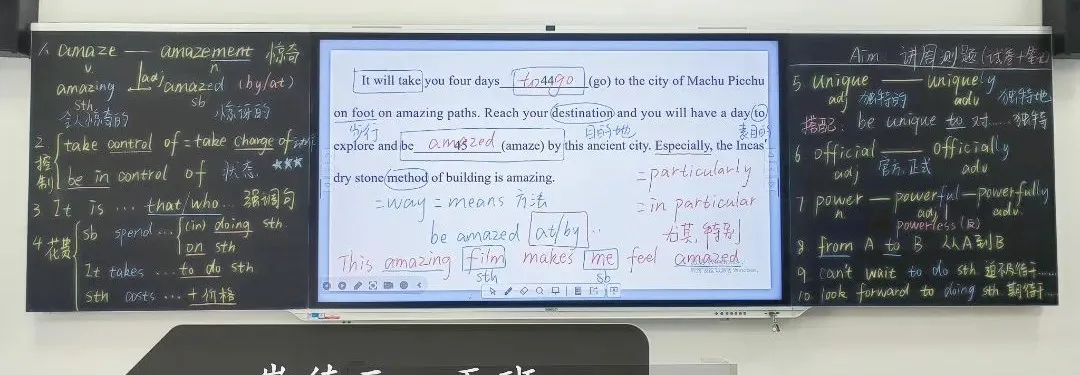 1. amaze — amazement 惊奇
v n
amazing adj amazed (by/at)
sth sb
令人惊奇的 惊讶的
2 控制 take control of = take charge of 动作
be in control of 状态 ★★★
3 It is … that/who… 强调句
4 花费 sb spend … (in) doing sth
on sth
It takes … to do sth
sth costs … + 价格
It will take you four days to 44 go (go) to the city of Machu Picchu
on foot on amazing paths. Reach your destination and you will have a day to
步行 目的地 表目的
explore and be 45 amazed (amaze) by this ancient city. Especially, the Incas'
dry stone method of building is amazing.
= particularly
= way = means 方法 = in particular
be amazed at/by .. 尤其, 特别
This amazing film makes me feel amazed
sth sb
Aim 讲周测题
5 unique — uniquely
adj 独特的 adv 独特地
搭配: be unique to 对……独特
6 official — officially
adj 官方,正式 adv
7 power — powerful — powerfully
n adj adv
powerless (反)
8 from A to B 从A到B
9 can't wait to do sth 迫不及待……
10. look forward to doing sth 期待……